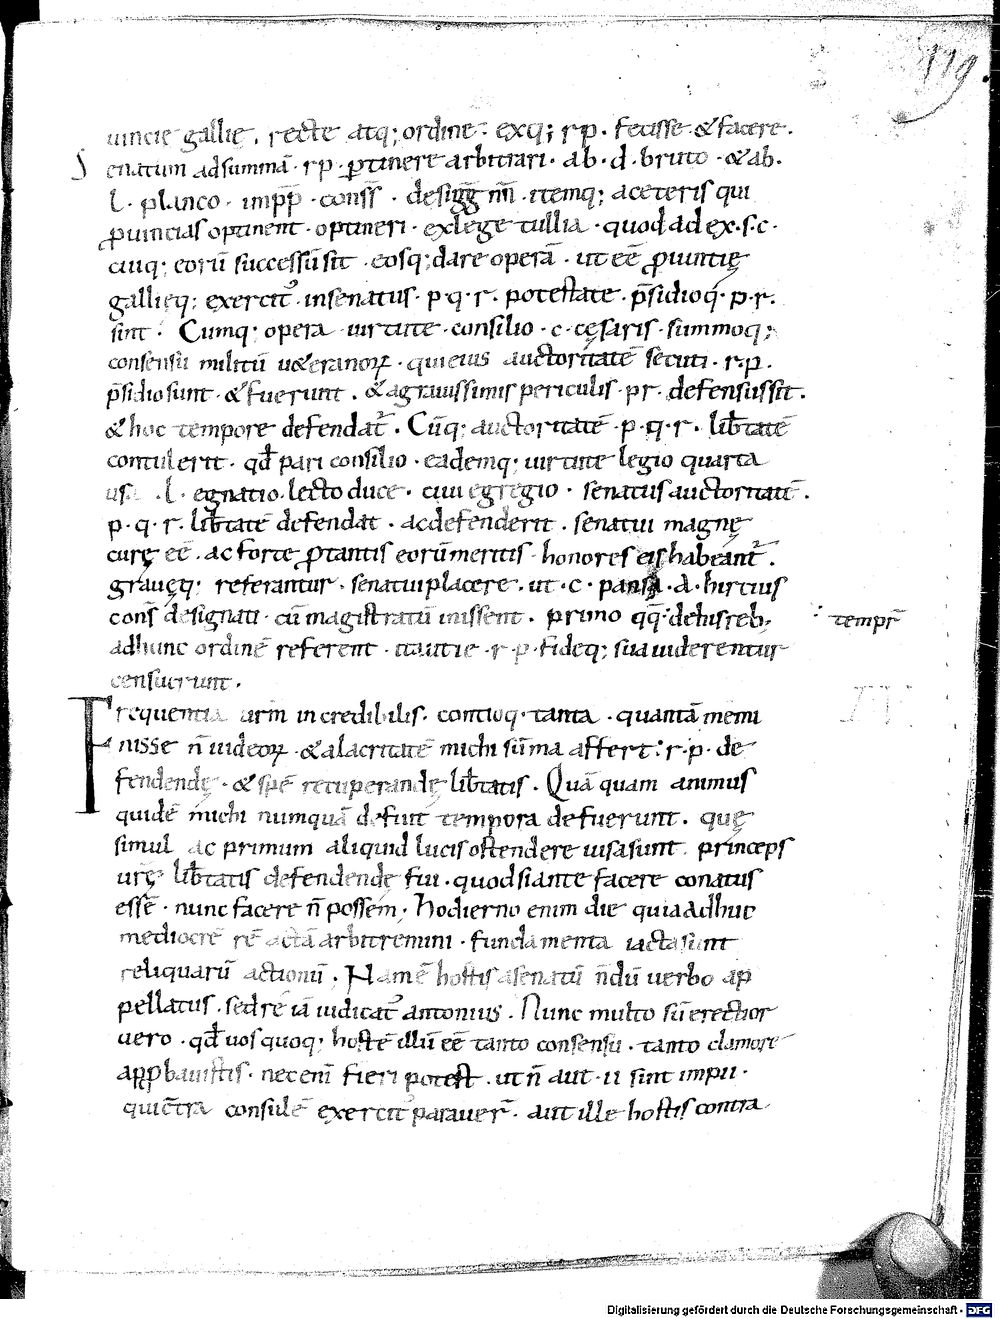 119.
uincie gallie. recte atq; ordine. exq; r p. fecisse & facere.
Senatum ad summā. r p. ptinere arbitrari. ab. d. bruto. & ab.
l. planco. impp̄. consš. desigḡ nn̄. itemq; aceteris qui
puincias optinent. optineri. exlege iullia. quod ad ex. s. c.
cuiq; eorū successū sit. eosq; dare operā. ut eē puintię
gallięq; exercit᾽ insenatus. p. q. r. potestate. p̄sidioq̄. p. r.
sint. Cumq; opera uirtute. consilio. c. cęsaris. summoq;
consensu militū u&eranoꝝ. qui eius auctoritatē secuti. r. p.
p̄sidio sunt. & fuerunt. & agrauissimis periculis. pr. defensus sit.
& hoc tempore defendat᷑. Cūq; auctoritatē. p. q. r. lib̄tatē
contulerit. qđ pari consilio. eademq; uirtute legio quarta
us. l. egnatio. lecto duce. ciui egregio. senatus auctoritatē.
p. q. r. lib̄tatē defendat. ac defenderit. senatui magnę
curę eē. ac forte ptantis eorū meritis. honores eis habeant᷑.
graueq; referantur. senatui placere. ut. c. pansa. a. hirtius
cons̄ designati. cū magistratū inissent. primo qq̄; de his reb; tempr̄
ad hunc ordinē referent. ita utie. r. p. fideq; sua uiderentur
censuerunt.
Frequentia urm̄ incredibilis. contioq; tanta. quantā memi IV.
nisse n̄ uideoꝝ. & alacritatē michi sūma affert. r. p. de
fendendę. & spē recuperandę lib̄tatis. Quā quam animus
quidē michi numquā defuit tempora defuerunt. quę
simul ac primum aliquid lucis ostendere uisa sunt. princeps
urę̄ lib̄tatis defendendę fui. quod si ante facere conatus
essē. nunc facere n̄ possem. Hodierno enim die quia adhuc
mediocrē rē actā arbitremini. fundamenta iacta sunt
reliquarū actionū. Nam ē hostis a senatu n̄dū uerbo ap
pellatus. sed rē iā iudicat᾽ antonius. Nunc multo sū erectior
uero. qđ uos quoq; hostē illū eē tanto consensu. tanto clamore
appbauistis. nec eni fieri potest. ut n̄ aut. ii sint impii.
qui ctra consulē exercit᾽ parauer̄. aut ille hostis contra
Digitalisierung gefördert durch die Deutsche Forschungsgemeinschaft - DFG